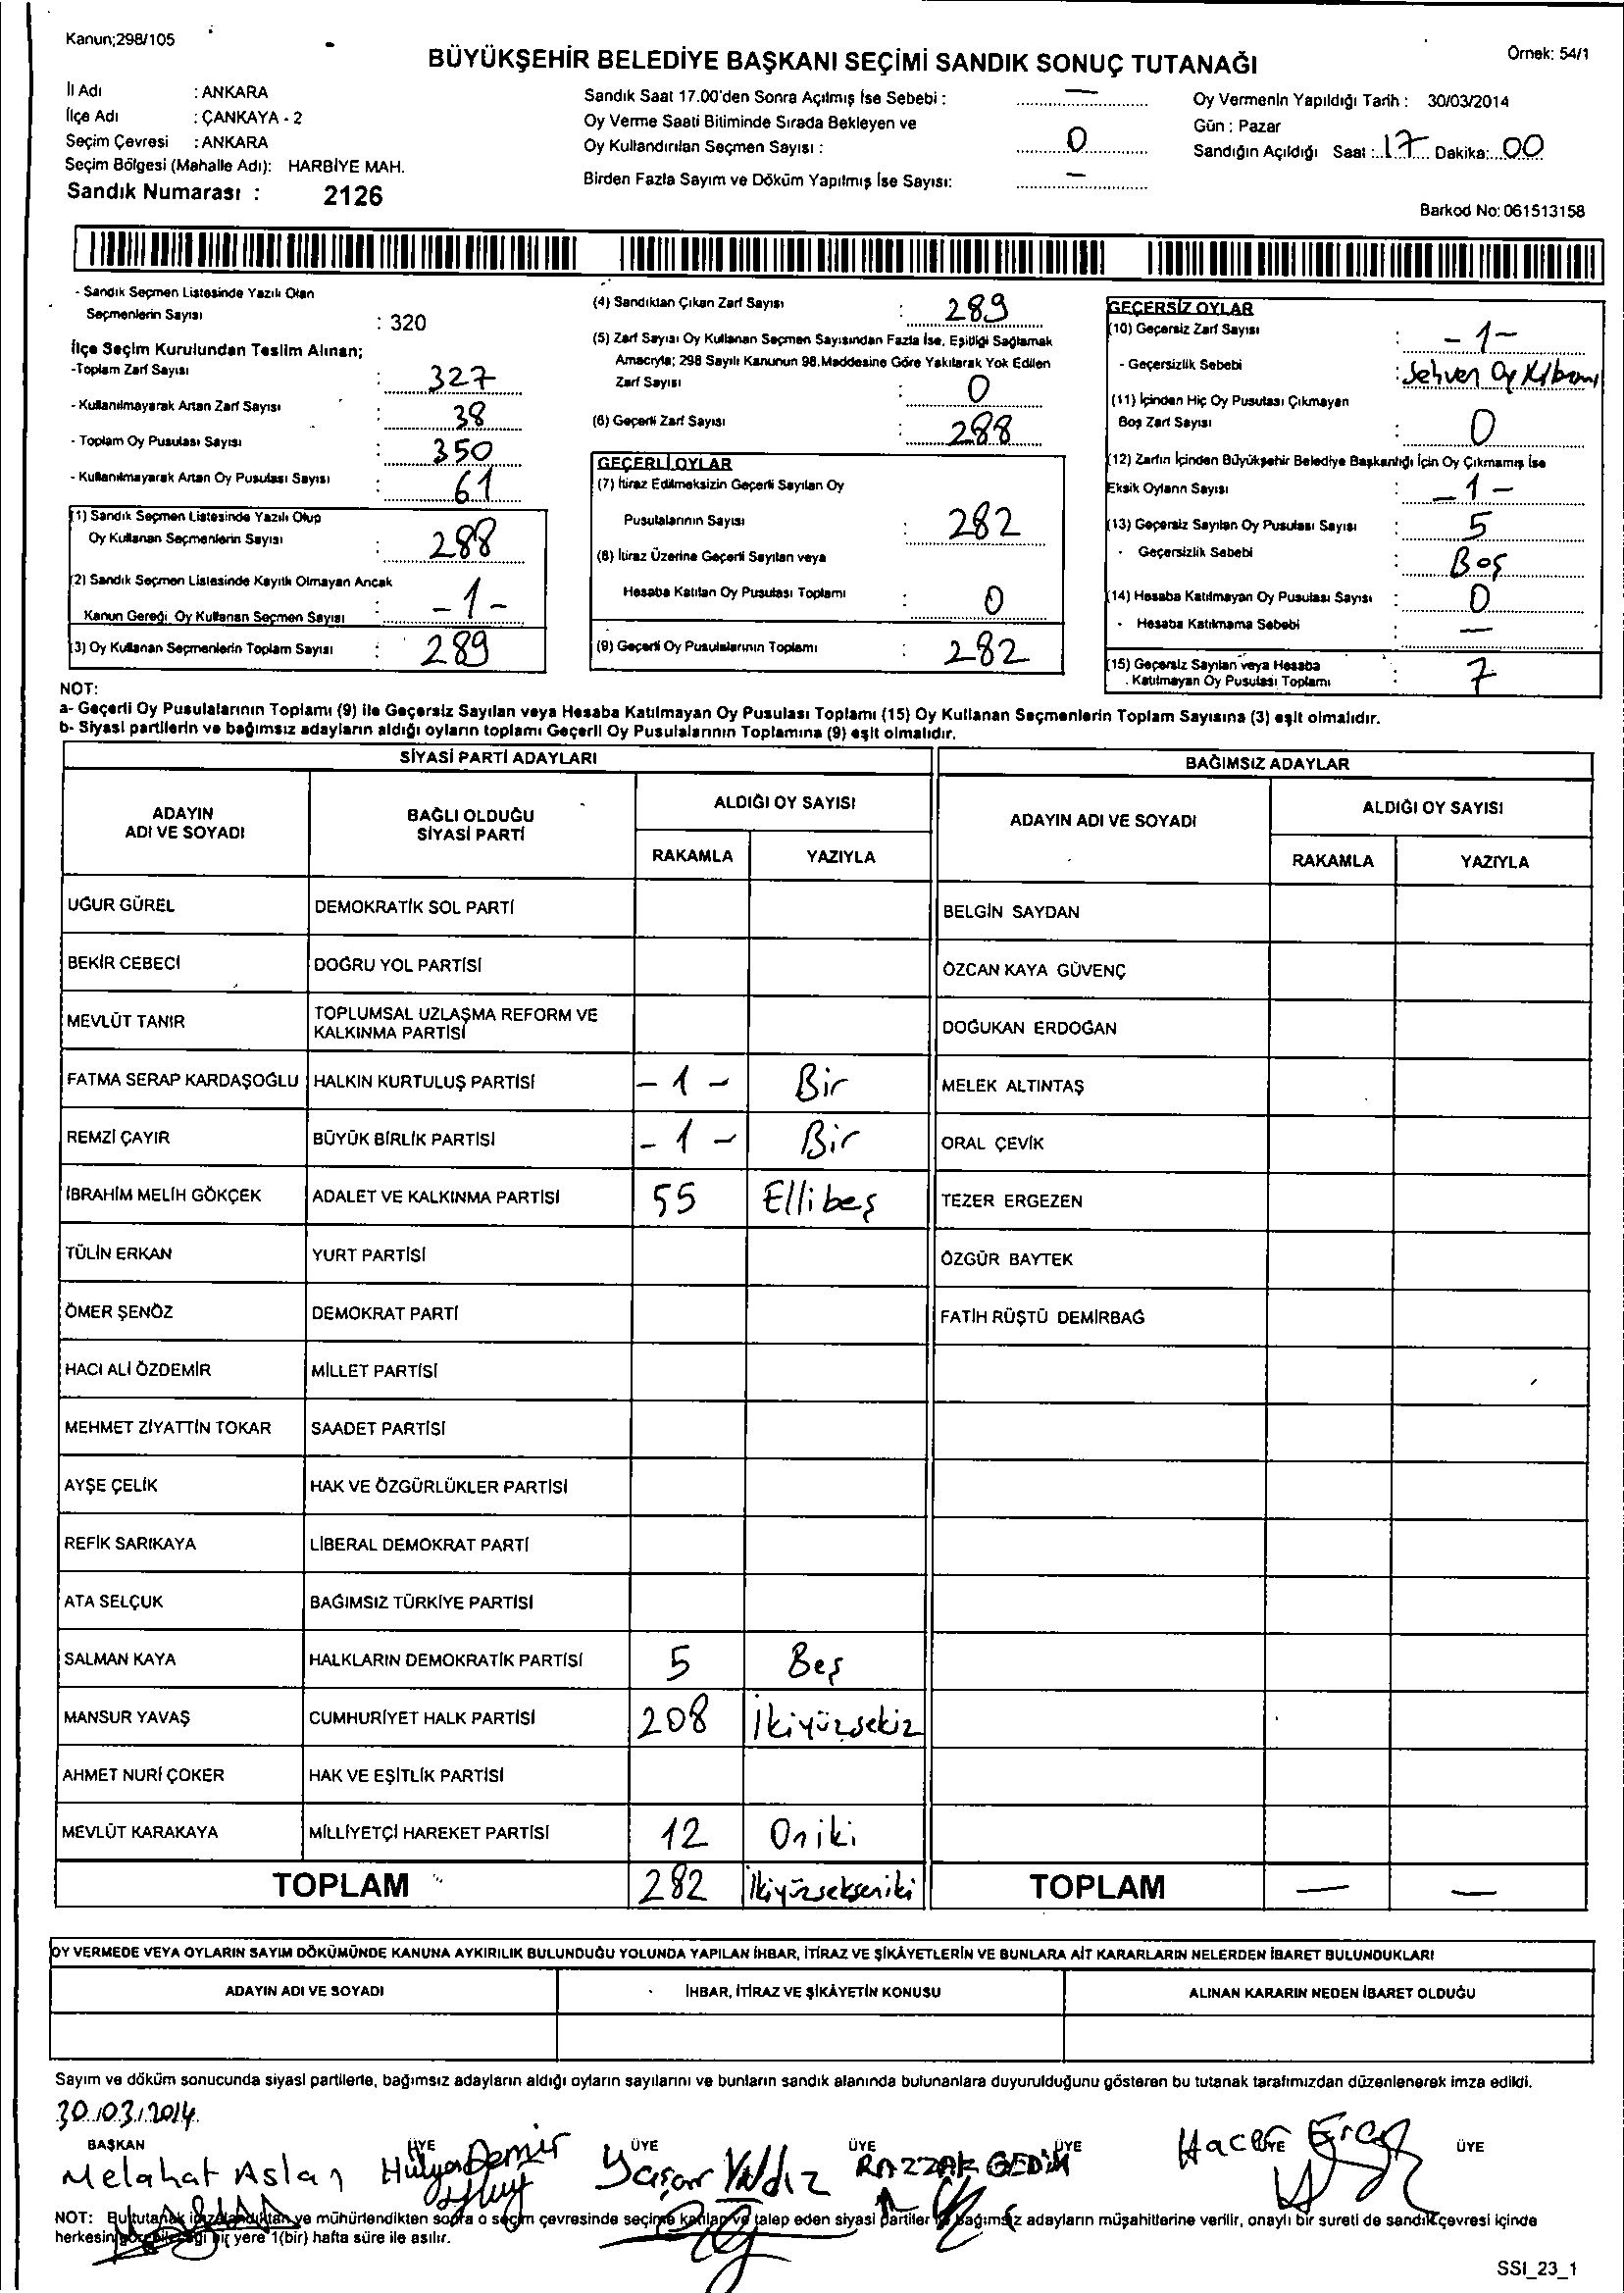 Kanun;298/105
Örnek: 54/1
BÜYÜKŞEHİR BELEDİYE BAŞKANI SEÇİMİ SANDIK SONUÇ TUTANAĞI
İl Adı : ANKARA
İlçe Adı : ÇANKAYA - 2
Seçim Çevresi : ANKARA
Seçim Bölgesi (Mahalle Adı): HARBİYE MAH.
Sandık Numarası : 2126
Sandık Saat 17.00'den Sonra Açılmış İse Sebebi : —
Oy Verme Saati Bitiminde Sırada Bekleyen ve
Oy Kullandırılan Seçmen Sayısı : 0
Birden Fazla Sayım ve Döküm Yapılmış İse Sayısı: —
Oy Vermenin Yapıldığı Tarih : 30/03/2014
Gün : Pazar
Sandığın Açıldığı Saat : 17 Dakika: 00
Barkod No: 061513158
- Sandık Seçmen Listesinde Yazılı Olan
Seçmenlerin Sayısı : 320
İlçe Seçim Kurulundan Teslim Alınan;
-Toplam Zarf Sayısı : 327
- Kullanılmayarak Artan Zarf Sayısı : 38
- Toplam Oy Pusulası Sayısı : 350
- Kullanılmayarak Artan Oy Pusulası Sayısı : 61
(1) Sandık Seçmen Listesinde Yazılı Olup
Oy Kullanan Seçmenlerin Sayısı : 288
(2) Sandık Seçmen Listesinde Kayıtlı Olmayan Ancak
Kanun Gereği Oy Kullanan Seçmen Sayısı : -1-
(3) Oy Kullanan Seçmenlerin Toplam Sayısı : 289
(4) Sandıktan Çıkan Zarf Sayısı : 289
(5) Zarf Sayısı Oy Kullanan Seçmen Sayısından Fazla İse, Eşitliği Sağlamak
Amacıyla; 298 Sayılı Kanunun 98.Maddesine Göre Yakılarak Yok Edilen
Zarf Sayısı : 0
(6) Geçerli Zarf Sayısı : 288
GEÇERLİ OYLAR
(7) İtiraz Edilmeksizin Geçerli Sayılan Oy
Pusulalarının Sayısı : 282
(8) İtiraz Üzerine Geçerli Sayılan veya
Hesaba Katılan Oy Pusulası Toplamı : 0
(9) Geçerli Oy Pusulalarının Toplamı : 282
GEÇERSİZ OYLAR
(10) Geçersiz Zarf Sayısı : -1-
- Geçersizlik Sebebi : Sehven Oy
(11) İçinden Hiç Oy Pusulası Çıkmayan
Boş Zarf Sayısı : 0
(12) Zarfın İçinden Büyükşehir Belediye Başkanlığı İçin Oy Çıkmamış İse
Eksik Oyların Sayısı : -1-
(13) Geçersiz Sayılan Oy Pusulası Sayısı : 5
- Geçersizlik Sebebi : Boş
(14) Hesaba Katılmayan Oy Pusulası Sayısı : 0
- Hesaba Katılmama Sebebi : —
(15) Geçersiz Sayılan veya Hesaba
Katılmayan Oy Pusulası Toplamı : 7
NOT:
a- Geçerli Oy Pusulalarının Toplamı (9) ile Geçersiz Sayılan veya Hesaba Katılmayan Oy Pusulası Toplamı (15) Oy Kullanan Seçmenlerin Toplam Sayısına (3) eşit olmalıdır.
b- Siyasi partilerin ve bağımsız adayların aldığı oyların toplamı Geçerli Oy Pusulalarının Toplamına (9) eşit olmalıdır.
SİYASİ PARTİ ADAYLARI
ADAYIN ADI VE SOYADI
BAĞLI OLDUĞU SİYASİ PARTİ
ALDIĞI OY SAYISI
RAKAMLA YAZIYLA
BAĞIMSIZ ADAYLAR
ADAYIN ADI VE SOYADI
ALDIĞI OY SAYISI
RAKAMLA YAZIYLA
UĞUR GÜREL DEMOKRATİK SOL PARTİ BELGİN SAYDAN
BEKİR CEBECİ DOĞRU YOL PARTİSİ ÖZCAN KAYA GÜVENÇ
MEVLÜT TANIR TOPLUMSAL UZLAŞMA REFORM VE KALKINMA PARTİSİ DOĞUKAN ERDOĞAN
FATMA SERAP KARDAŞOĞLU HALKIN KURTULUŞ PARTİSİ -1- Bir MELEK ALTINTAŞ
REMZİ ÇAYIR BÜYÜK BİRLİK PARTİSİ -1- Bir ORAL ÇEVİK
İBRAHİM MELİH GÖKÇEK ADALET VE KALKINMA PARTİSİ 55 Ellibeş TEZER ERGEZEN
TÜLİN ERKAN YURT PARTİSİ ÖZGÜR BAYTEK
ÖMER ŞENÖZ DEMOKRAT PARTİ FATİH RÜŞTÜ DEMİRBAĞ
HACI ALİ ÖZDEMİR MİLLET PARTİSİ
MEHMET ZİYATTİN TOKAR SAADET PARTİSİ
AYŞE ÇELİK HAK VE ÖZGÜRLÜKLER PARTİSİ
REFİK SARIKAYA LİBERAL DEMOKRAT PARTİ
ATA SELÇUK BAĞIMSIZ TÜRKİYE PARTİSİ
SALMAN KAYA HALKLARIN DEMOKRATİK PARTİSİ 5 Beş
MANSUR YAVAŞ CUMHURİYET HALK PARTİSİ 208 İkiyüzsekiz
AHMET NURİ ÇOKER HAK VE EŞİTLİK PARTİSİ
MEVLÜT KARAKAYA MİLLİYETÇİ HAREKET PARTİSİ 12 Oniki
TOPLAM 282 İkiyüzsekseniki TOPLAM — —
OY VERMEDE VEYA OYLARIN SAYIM DÖKÜMÜNDE KANUNA AYKIRILIK BULUNDUĞU YOLUNDA YAPILAN İHBAR, İTİRAZ VE ŞİKÂYETLERİN VE BUNLARA AİT KARARLARIN NELERDEN İBARET BULUNDUKLARI
ADAYIN ADI VE SOYADI İHBAR, İTİRAZ VE ŞİKÂYETİN KONUSU ALINAN KARARIN NEDEN İBARET OLDUĞU
Sayım ve döküm sonucunda siyasi partilerle, bağımsız adayların aldığı oyların sayılarını ve bunların sandık alanında bulunanlara duyurulduğunu gösteren bu tutanak tarafımızdan düzenlenerek imza edildi.
30.03.2014
BAŞKAN ÜYE ÜYE ÜYE ÜYE ÜYE ÜYE
Melahat Aslan Hülya Demir Yaşar Yıldız RAZZAK GEDİK Hacer
NOT: Bu tutanak imzalandıktan ve mühürlendikten sonra o seçim çevresinde seçime katılan ve talep eden siyasi partiler ve bağımsız adayların müşahitlerine verilir, onaylı bir sureti de sandık çevresi içinde
herkesin görebileceği bir yere 1(bir) hafta süre ile asılır.
SSI_23_1